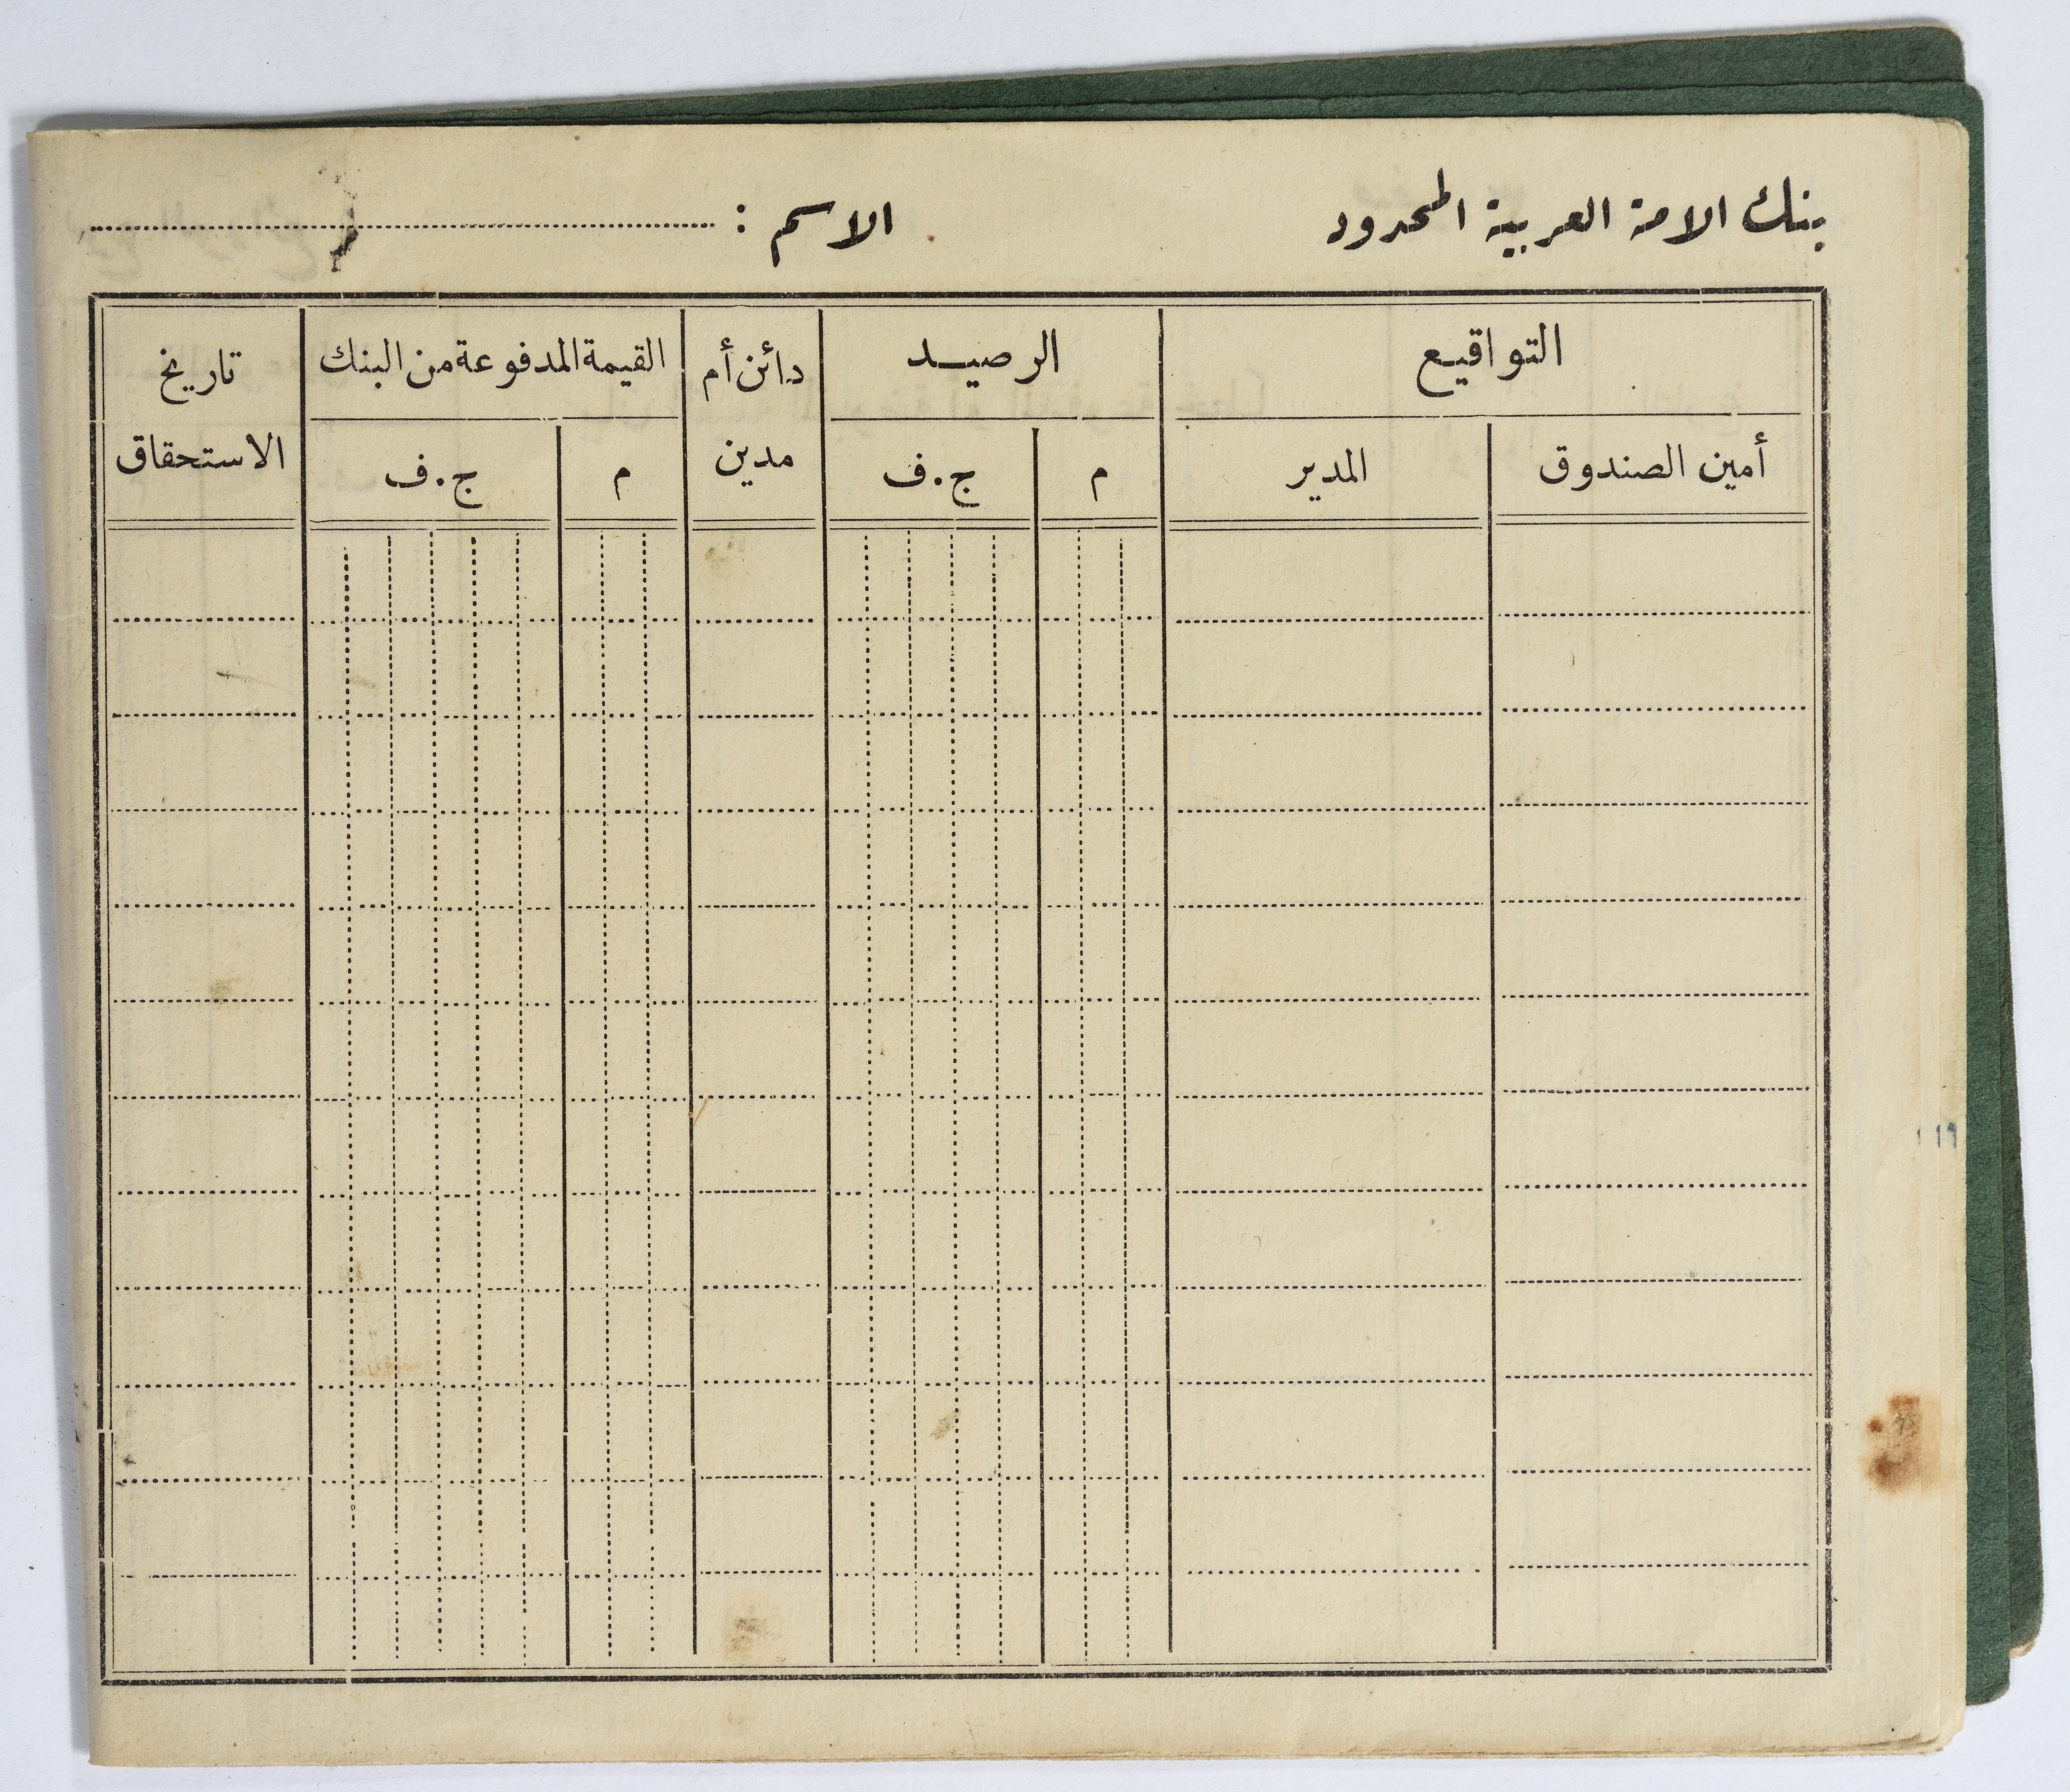 بنك الامة العربية المحدود
الاسم :
التواقيع
الرصيد
دائن أم
مدين
القيمة المدفوعة من البنك
تاريخ
الاستحقاق
أمين الصندوق
المدير
م
ج.ف
م
ج.ف